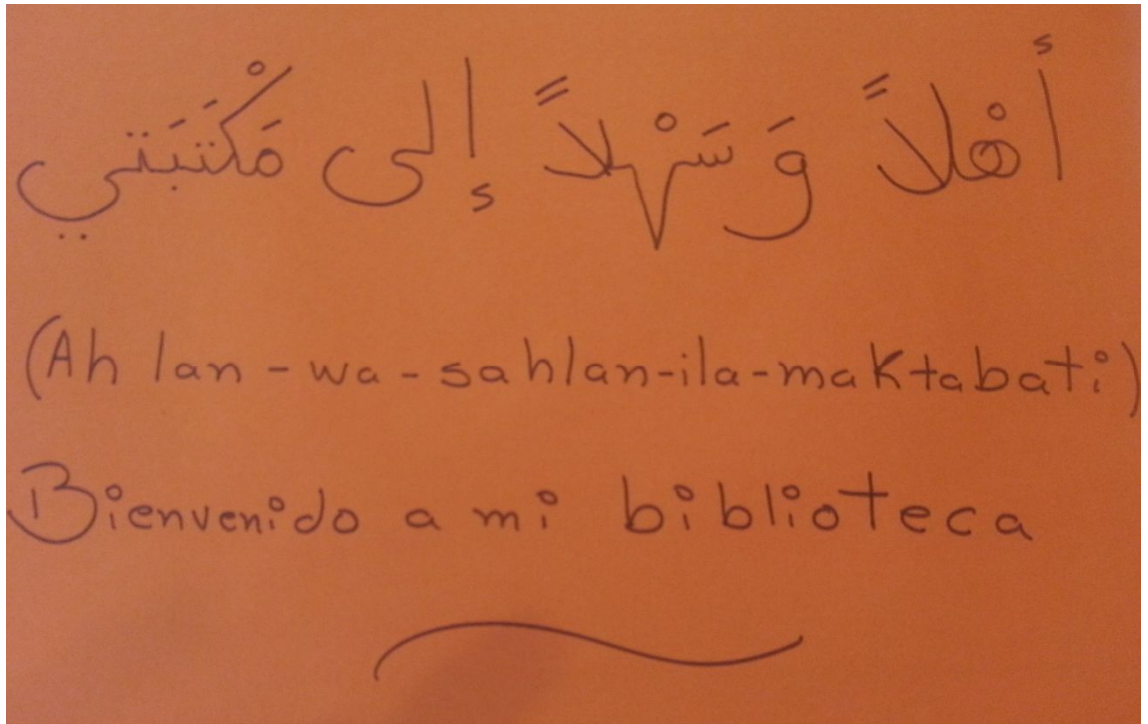 أَهْلاً وَ سَهْلاً إِلى مَكْتَبَتي
(Ah lan-wa-sahlan-ila-maktabati)
Bienvenido a mi biblioteca